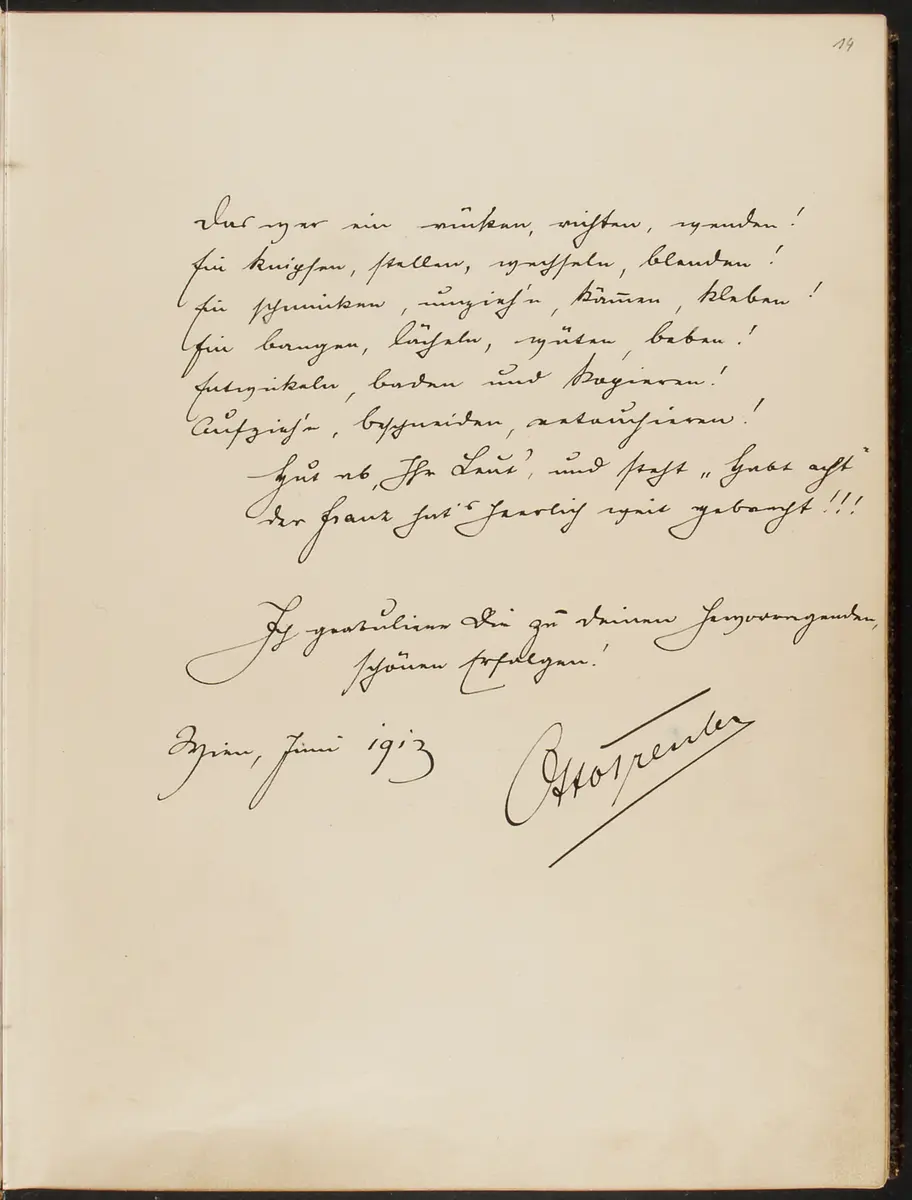 14
Das war ein rücken, richten, wenden!
Ein knipsen, stellen, wechseln, blenden!
Ein schminken, umzieh'n, kämmen, kleben!
Ein bangen, lächeln, wüten, beben!
Entwickeln, baden und kopieren!
Aufzieh'n, beschneiden, retouchieren!
Hut ab, Ihr Leut', und steht „Habt acht"
der Franz hat's herrlich weit gebracht!!!
Ich gratuliere Dir zu deinen hervorragenden,
schönen Erfolgen!
Wien, Juni 1913
Otto